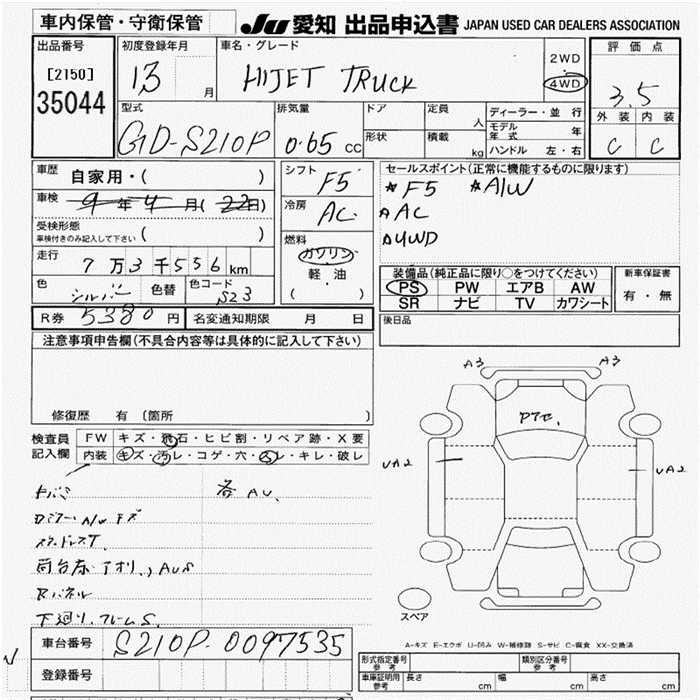 車内保管・守衛保管
JU 愛知 出品申込書 JAPAN USED CAR DEALERS ASSOCIATION
出品番号
[2150]
35044
初度登録年月
13 月
車名・グレード
HIJET TRUCK
2WD
4WD
評価点
3.5
外装 内装
C C
型式
GD-S210P
排気量
0.65 CC
ドア
形状
定員 人
積載 kg
ディーラー・並行
モデル年式 年
ハンドル 左・右
車歴
自家用・( )
車検
9年4月(22日)
受検形態
車検付きのみ記入して下さい ( )
走行
7万3千556km
色
シルバー
色替
色コード
S23
シフト
F5
冷房
AC
燃料
ガソリン
軽・油
( )
セールスポイント(正常に機能するものに限ります)
*F5 *A/W
*AC
*4WD
装備品(純正品に限り○をつけてください)
PS PW エアB AW
SR ナビ TV カワシート
新車保証書
有・無
R券 5380円
名変通知期限 月 日
後日品
注意事項申告欄(不具合内容等は具体的に記入して下さい)
修復歴 有 (箇所 )
検査員記入欄
FW キズ・飛石・ヒビ割・リペア跡・X要
内装 キズ・汚レ・コゲ・穴・スレ・キレ・破レ
各AU、
A3 A3
UA2 UA2
スペア
下廻リ、フレームS.
A-キズ E-エクボ U-凹み W-補修跡 S-サビ C-腐食 XX-交換済
車台番号
S210P-0097535
登録番号
形式指定番号 参考
類別区分番号 参考
車庫証明用 参考
長さ cm
幅 cm
高さ cm